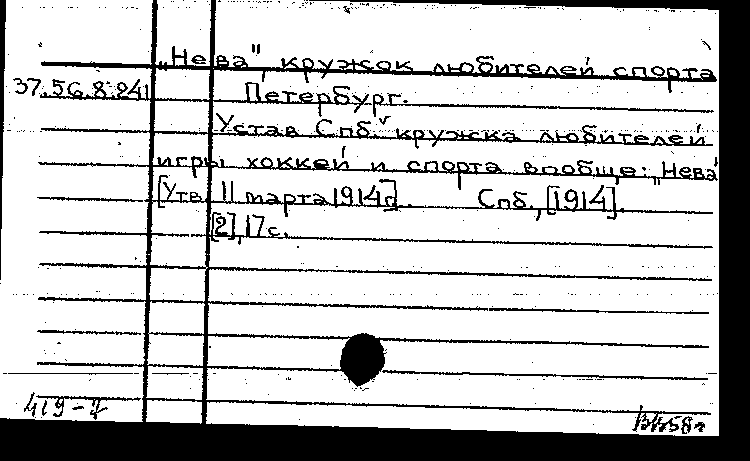 „Нева", кружок любителей спорта
37.56.8.241 Петербург.
Устав Спб. кружка любителей
игры хоккей и спорта вообще: „Нева"
[Утв. 11 марта 1914г]. Спб., [1914].
[2], 17с.
419-7